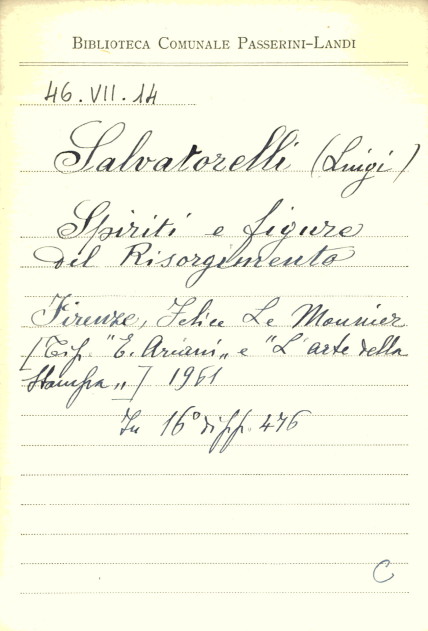 BIBLIOTECA COMUNALE PASSERINI-LANDI
46.VII.14
Salvatorelli (Luigi)
Spiriti e figure
del Risorgimento
Firenze, Felice Le Monnier
[Tip. "E. Ariani" e "L'arte della
Stampa"] 1961
In 16° di pp. 476
C